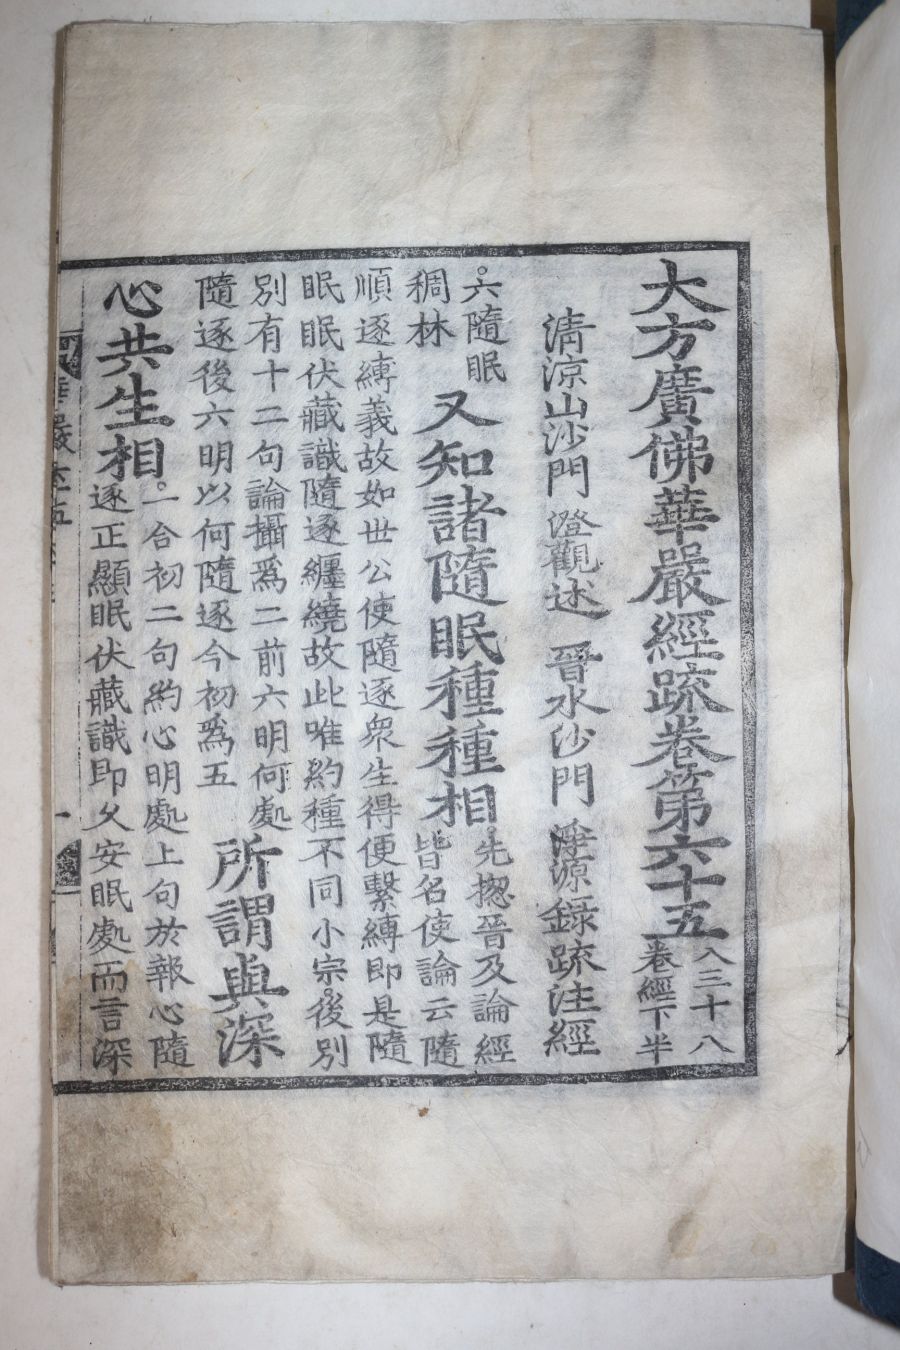 大方廣佛華嚴經䟽卷第六十五
入三十八
卷經下半
清涼山沙門 澄觀述 晉水沙門 淨源錄䟽注經
六隨眠
稠林
又知諸隨眠種種相
先揔晉及論經
皆名使論云隨
順逐縛義故如世公使隨逐衆生得便繫縛即是隨
眠眠伏藏識隨逐纏繞故此唯約種不同小宗後別
別有十二句論攝爲二前六明何處
隨逐後六明以何隨逐今初爲五
所謂與深
心共生相
一合初二句約心明處上句於報心隨
逐正顯眠伏藏識即久安眠處而言深